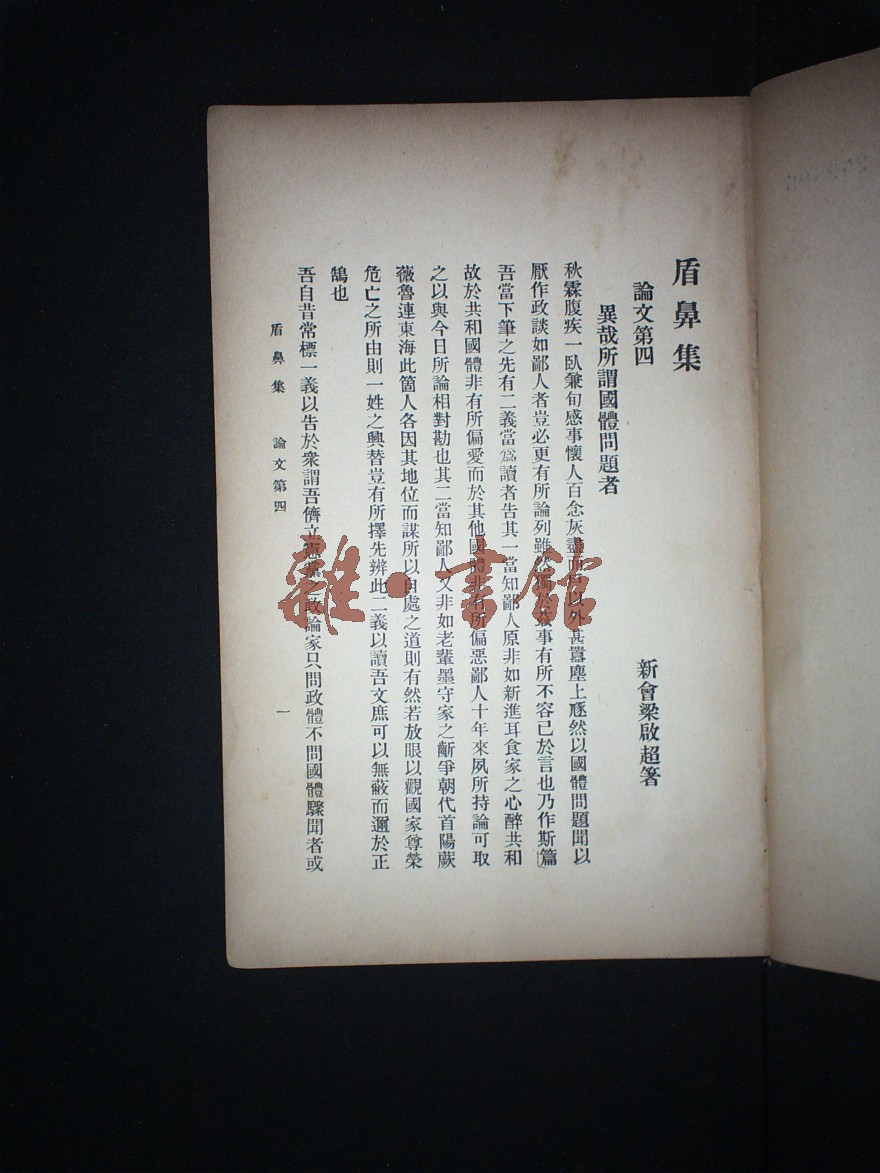 盾鼻集
論文第四
新會梁啟超箸
異哉所謂國體問題者
秋霖腹疾一臥兼旬感事懷人百念灰盡而戶以外甚囂塵上豗然以國體問題聞以
厭作政談如鄙人者豈必更有所論列雖然獨於茲事有所不容已於言也乃作斯篇
吾當下筆之先有二義當爲讀者告其一當知鄙人原非如新進耳食家之心醉共和
故於共和國體非有所偏愛而於其他國體非有所偏惡鄙人十年來夙所持論可取
之以與今日所論相對勘也其二當知鄙人又非如老輩墨守家之齗爭朝代首陽蕨
薇魯連東海此箇人各因其地位而謀所以自處之道則有然若放眼以觀國家尊榮
危亡之所由則一姓之興替豈有所擇先辨此二義以讀吾文庶可以無蔽而邇於正
鵠也
吾自昔常標一義以告於衆謂吾儕立憲黨之政論家只問政體不問國體驟聞者或
盾鼻集 論文第四 一
雜·書館